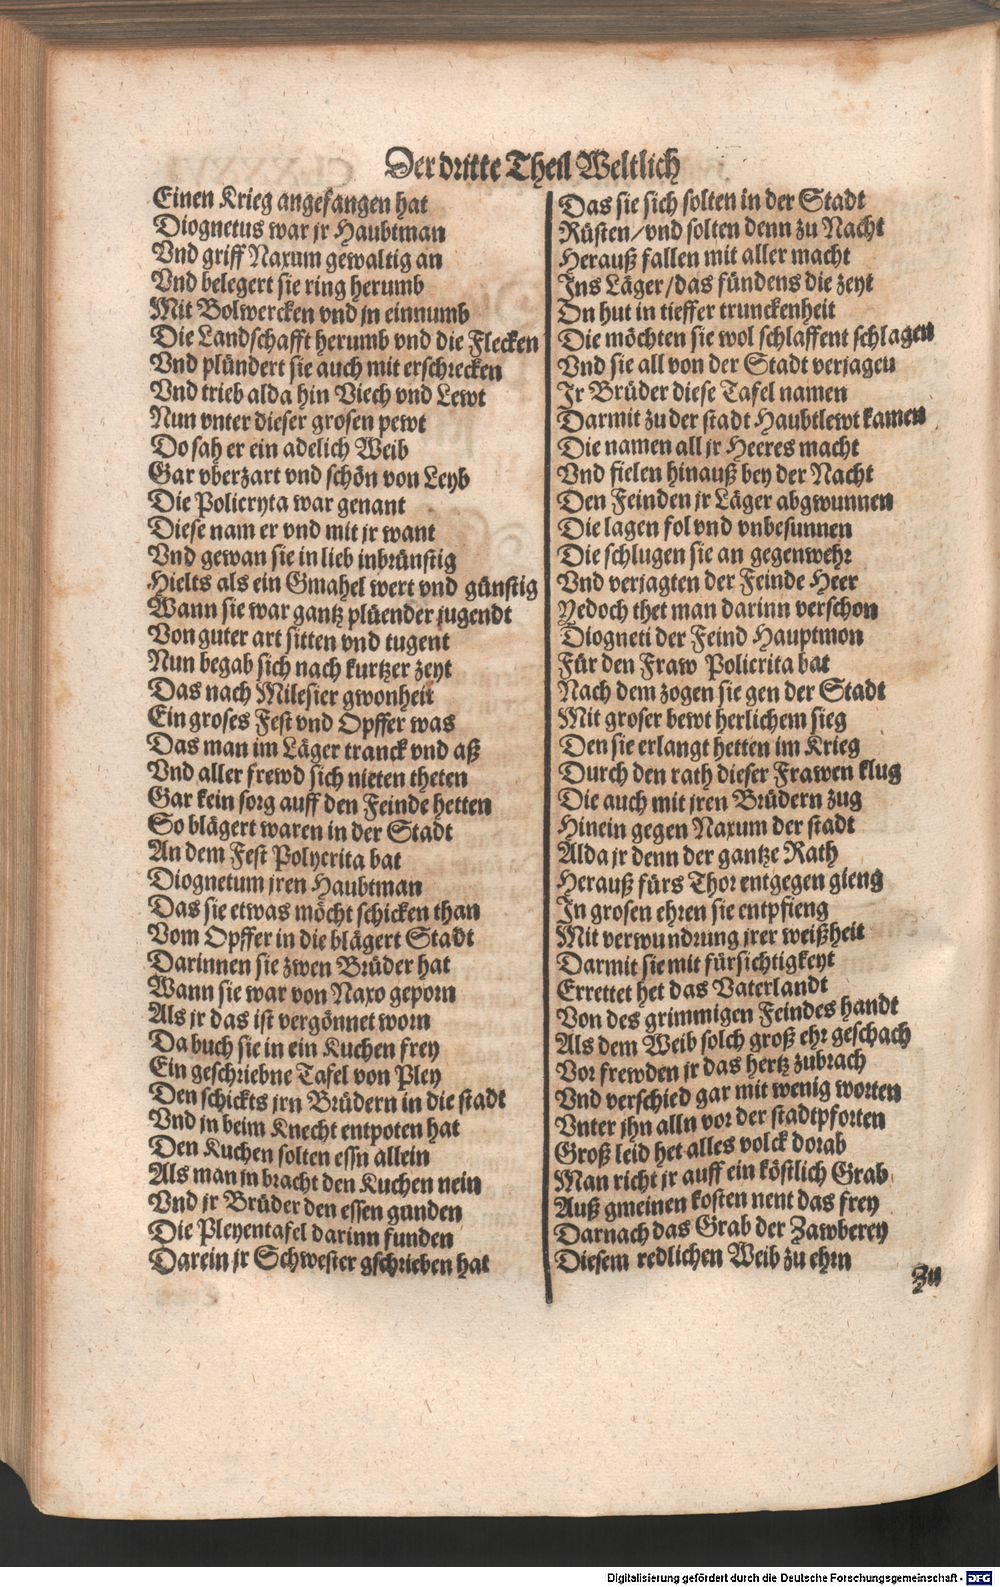 Der dritte Theil Weltlich
Einen Krieg angefangen hat
Diognetus war jr Haubtman
Vnd griff Naxum gewaltig an
Vnd belegert sie ring herumb
Mit Bolwercken vnd jn einnumb
Die Landschafft herumb vnd die Flecken
Vnd plündert sie auch mit erschrecken
Vnd trieb alda hin Viech vnd Lewt
Nun vnter dieser grosen pewt
Do sah er ein adelich Weib
Gar vberzart vnd schön von Leyb
Die Policryta war genant
Diese nam er vnd mit jr want
Vnd gewan sie in lieb inbrünstig
Hielts als ein Gmahel wert vnd günstig
Wann sie war gantz plüender jugendt
Von guter art sitten vnd tugent
Nun begab sich nach kurtzer zeyt
Das nach Milesier gwonheit
Ein groses Fest vnd Opffer was
Das man im Läger tranck vnd aß
Vnd aller frewd sich nieten theten
Gar kein sorg auff den Feinde hetten
So blägert waren in der Stadt
An dem Fest Polycrita bat
Diognetum jren Haubtman
Das sie etwas möcht schicken than
Vom Opffer in die blägert Stadt
Darinnen sie zwen Brüder hat
Wann sie war von Naxo geporn
Als jr das ist vergönnet worn
Da buch sie in ein Kuchen frey
Ein geschriebne Tafel von Pley
Den schickts jrn Brüdern in die stadt
Vnd jn beim Knecht entpoten hat
Den Kuchen solten essn allein
Als man jn bracht den Kuchen nein
Vnd jr Brüder den essen gunden
Die Pleyentafel darinn funden
Darein jr Schwester gschrieben hat
Das sie sich solten in der Stadt
Rüsten/vnd solten denn zu Nacht
Herauß fallen mit aller macht
Ins Läger/das fündens die zeyt
On hut in tieffer trunckenheit
Die möchten sie wol schlaffent schlagen
Vnd sie all von der Stadt verjagen
Jr Brüder diese Tafel namen
Darmit zu der stadt Haubtlewt kamen
Die namen all jr Heeres macht
Vnd fielen hinauß bey der Nacht
Den Feinden jr Läger abgwunnen
Die lagen fol vnd vnbesunnen
Die schlugen sie an gegenwehr
Vnd verjagten der Feinde Heer
Yedoch thet man darinn verschon
Diogneti der Feind Hauptmon
Für den Fraw Policrita bat
Nach dem zogen sie gen der Stadt
Mit groser bewt herlichem sieg
Den sie erlangt hetten im Krieg
Durch den rath dieser Frawen klug
Die auch mit jren Brüdern zug
Hinein gegen Naxum der stadt
Alda jr denn der gantze Rath
Herauß fürs Thor entgegen gieng
In grosen ehren sie entpfieng
Mit verwundrung jrer weißheit
Darmit sie mit fürsichtigkeyt
Errettet het das Vaterlandt
Von des grimmigen Feindes handt
Als dem Weib solch groß ehr geschach
Vor frewden jr das hertz zubrach
Vnd verschied gar mit wenig worten
Vnter jhn alln vor der stadtpforten
Groß leid het alles volck dorab
Man richt jr auff ein köstlich Grab
Auß gmeinen kosten nent das frey
Darnach das Grab der Zawberey
Diesem redlichen Weib zu ehrn
Zu
Digitalisierung gefördert durch die Deutsche Forschungsgemeinschaft - DFG